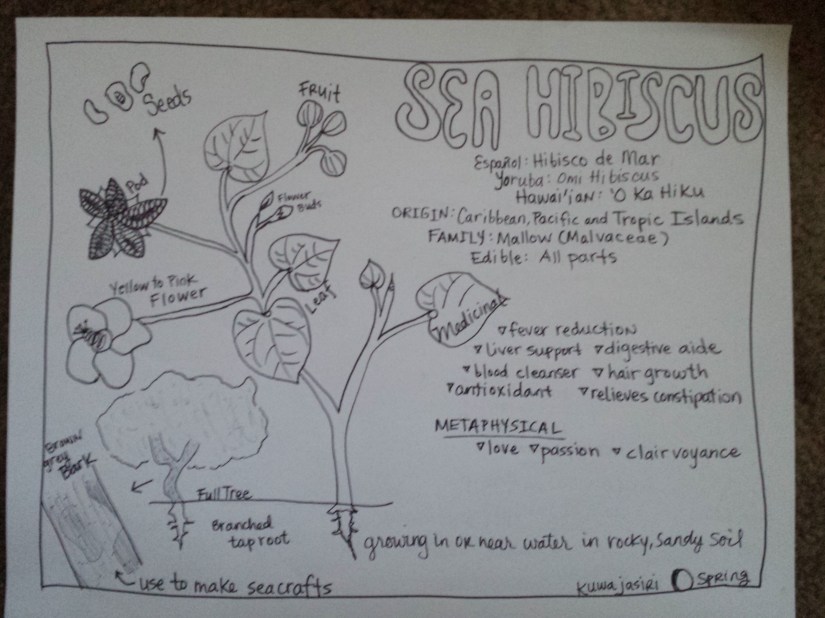 SEA HIBISCUS
Español: Hibisco de Mar
Yoruba: Omi Hibiscus
Hawai'ian: 'O Ka Hiku
ORIGIN: Caribbean, Pacific and Tropic Islands
FAMILY: Mallow (Malvaceae)
Edible: All parts
Seeds
FRUIT
Pod
Flower
Buds
Yellow to Pink
Flower
Leaf
Medicinal
▿ fever reduction
▿ liver support ▿ digestive aide
▿ blood cleanser ▿ hair growth
▿ antioxidant ▿ relieves constipation
METAPHYSICAL
▿ love ▿ passion ▿ clairvoyance
Brown
grey
Bark
Full Tree
Branched
taproot
growing in or near water in rocky, sandy soil
use to make seacrafts
Kuwa jasiri O SPRING